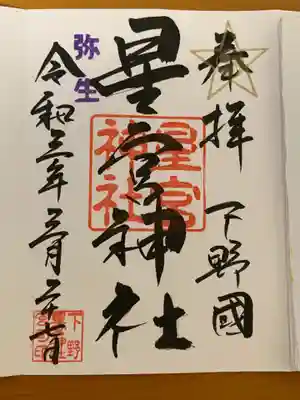 奉拝 下野國
星宮神社
星宮神社
弥生
令和三年三月二十七日
下野